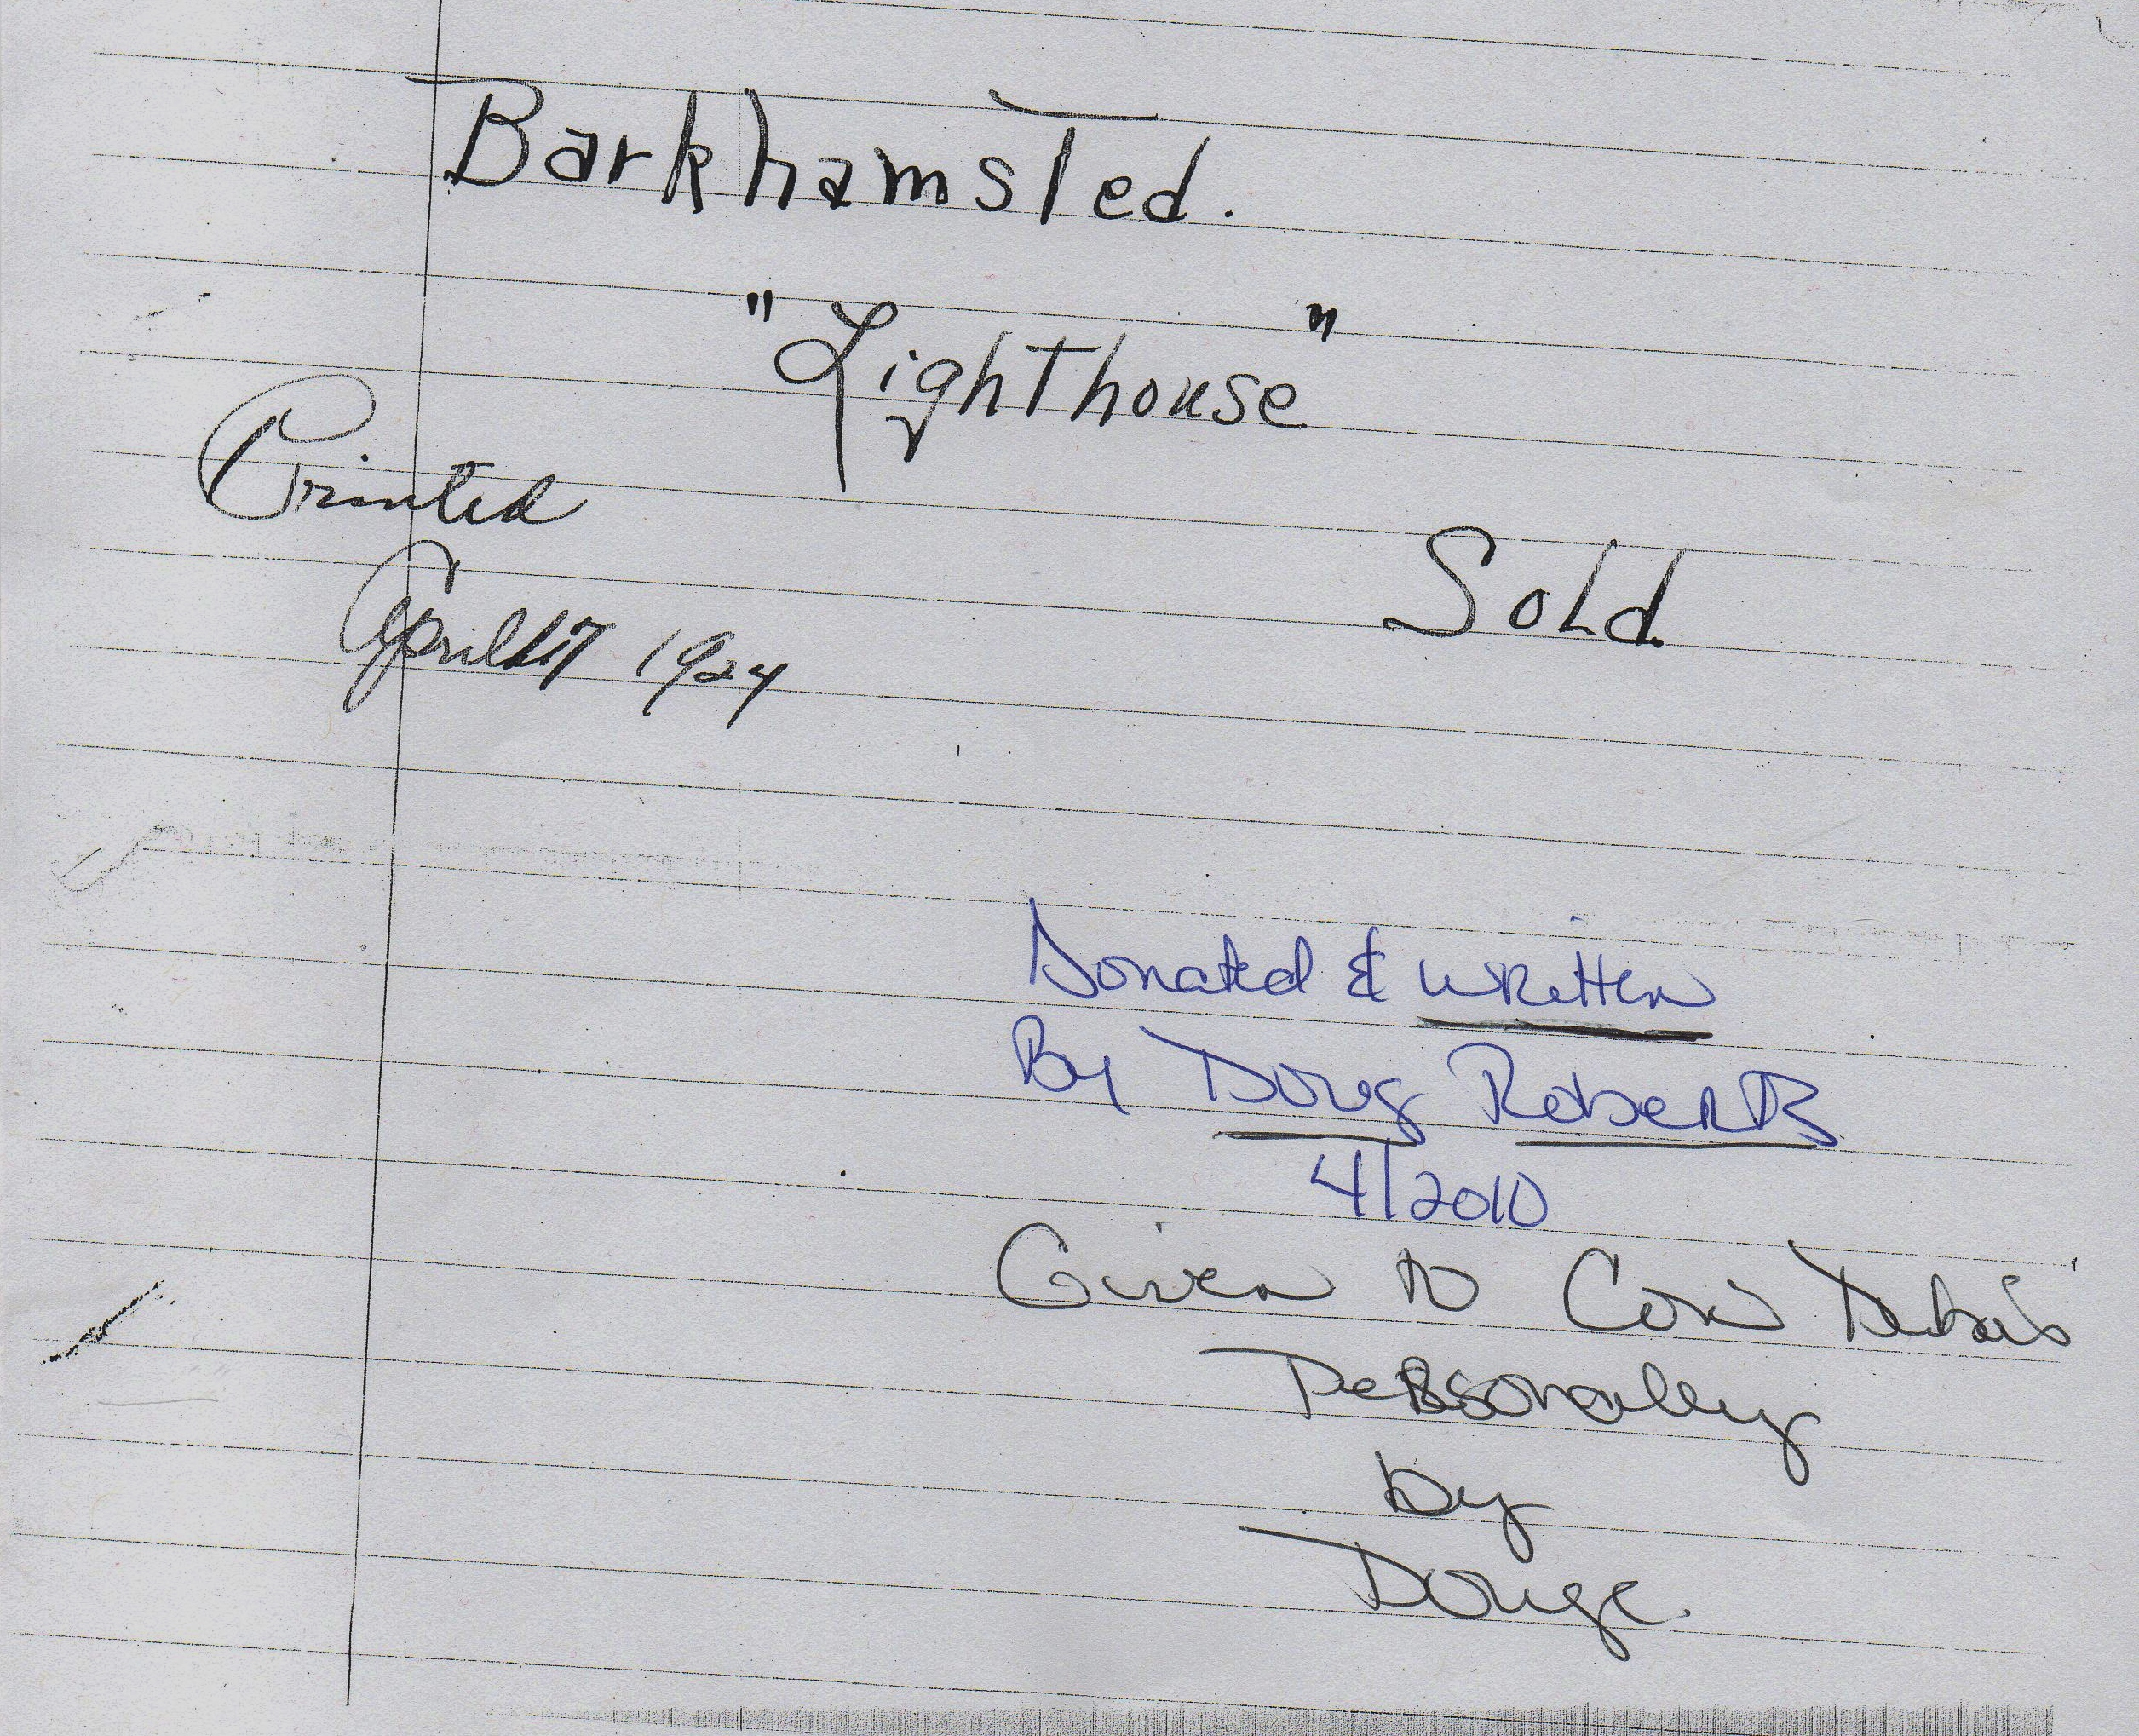 Barkhamsted.
"Lighthouse"
Printed
Sold
April 17 1924
Donated & written
By Doug Roberts
4/2010
Given to
Personally
by
Douge